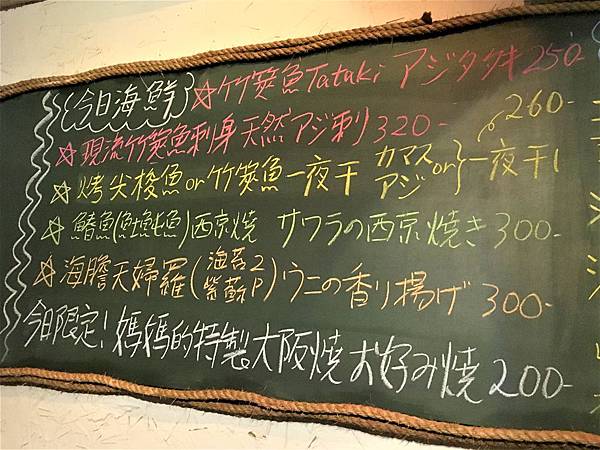 今日海鮮 ☆竹筴魚Tataki アジタタキ250-
☆現流竹筴魚刺身 天然アジ刺320-
260-
☆烤尖梭魚or竹筴魚一夜干 カマスorアジ}一夜干し
☆鰆魚(魠魠魚)西京燒 サワラの西京焼き300-
☆海膽天婦羅(海苔2 紫蘇P)ウニの香り揚げ300-
今日限定!媽媽的特製大阪燒お好み焼200-